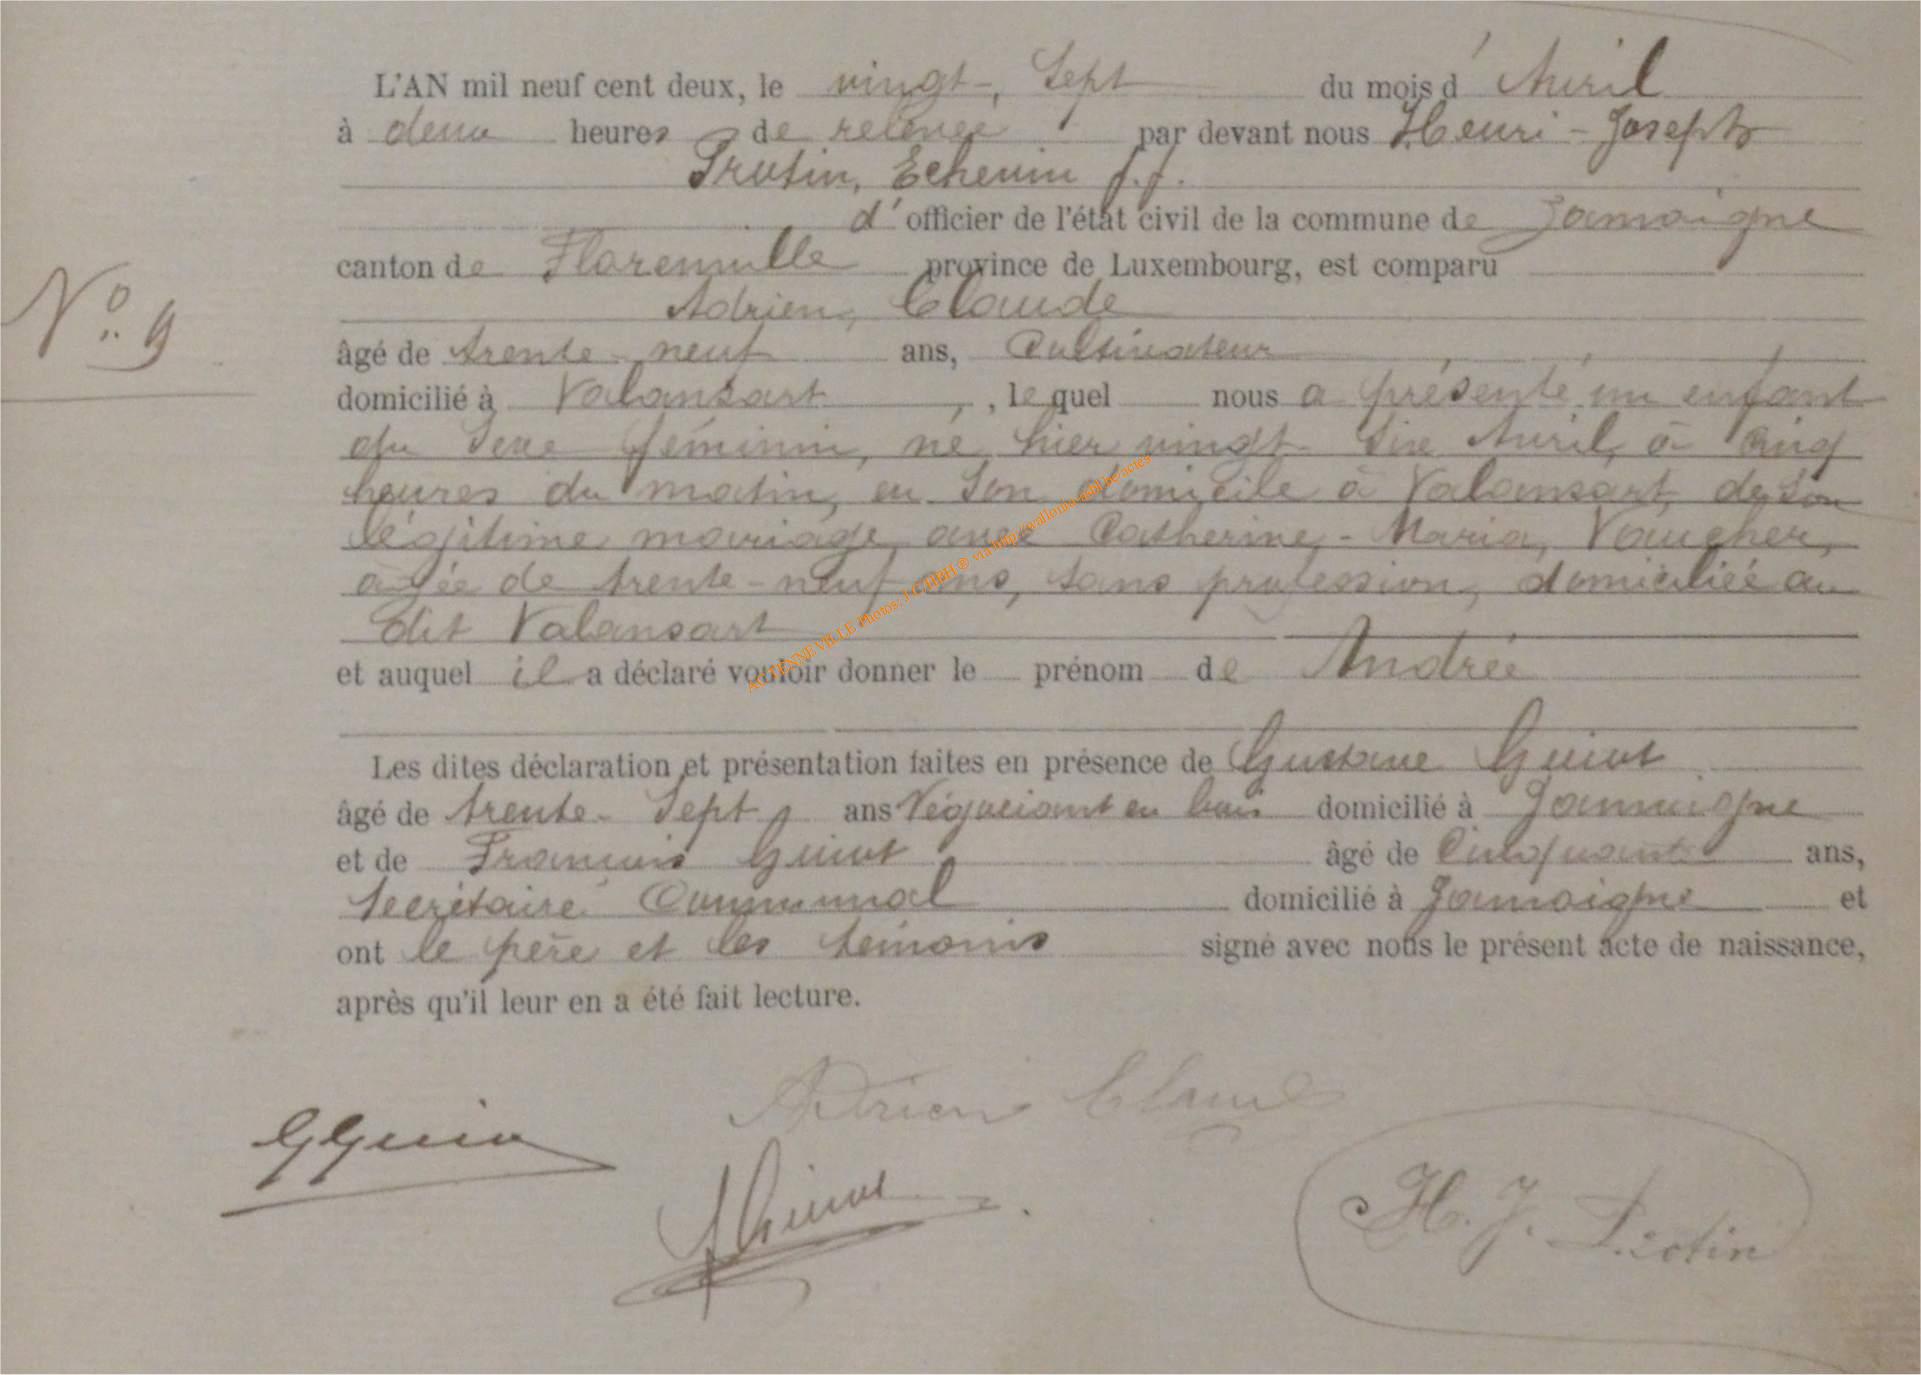 L'AN mil neuf cent deux, le vingt-sept du mois d'Avril
à deux heures de relevée par devant nous Henri-Joseph
Protin, Echevin f.f.
d'officier de l'état civil de la commune de Jamoigne
canton de Florenville province de Luxembourg, est comparu
N° 9
Adrien, Claude
âgé de trente-neuf ans, Cultivateur
domicilié à Valansart, lequel nous a présenté un enfant
du Sexe féminin, né hier vingt Six Avril, à Cinq
heures du matin, en Son domicile à Valansart, de Son
légitime mariage avec Catherine-Maria, Vaucher,
âgée de trente-neuf ans, Sans profession, domiciliée au
dit Valansart
et auquel il a déclaré vouloir donner le prénom de Andrée
Les dites déclaration et présentation faites en présence de Gustave Guiot
âgé de trente-Sept ans Négociant en bois domicilié à Jamoigne
et de François Guiot âgé de Cinquante ans,
Secrétaire Communal domicilié à Jamoigne et
ont le père et les témoins signé avec nous le présent acte de naissance,
après qu'il leur en a été fait lecture.
Adrien Claude
GGuiot
Guiot
H. J. Protin